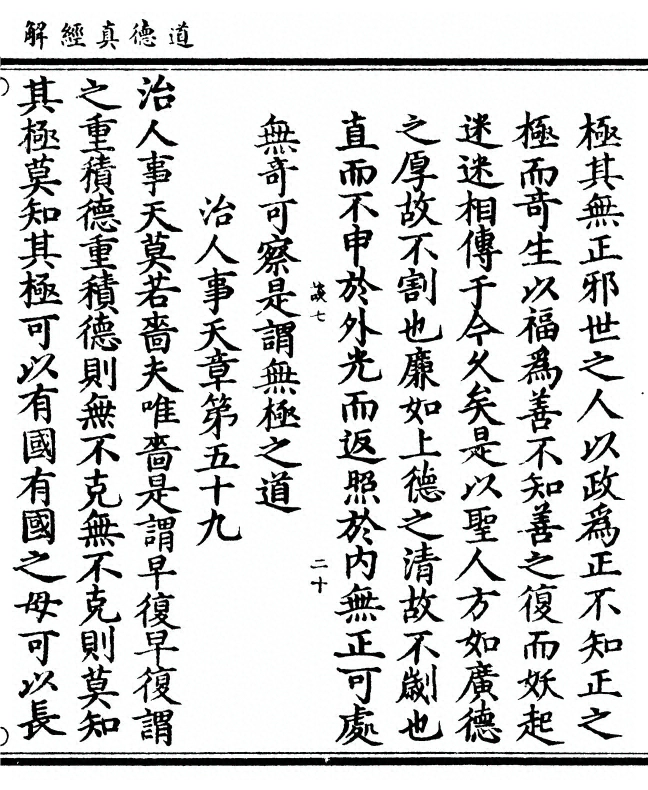 道德真經解
極其無正邪世之人以政為正不知正之
極而竒生以福為善不知善之復而妖起
迷迷相傳于今久矣是以聖人方如廣德
之厚故不割也廉如上德之清故不劌也
直而不申於外光而返照於内無正可處
二十
無竒可察是謂無極之道
治人事天章第五十九
治人事天莫若嗇夫唯嗇是謂早復早復謂
之重積德重積德則無不克無不克則莫知
其極莫知其極可以有國有國之母可以長